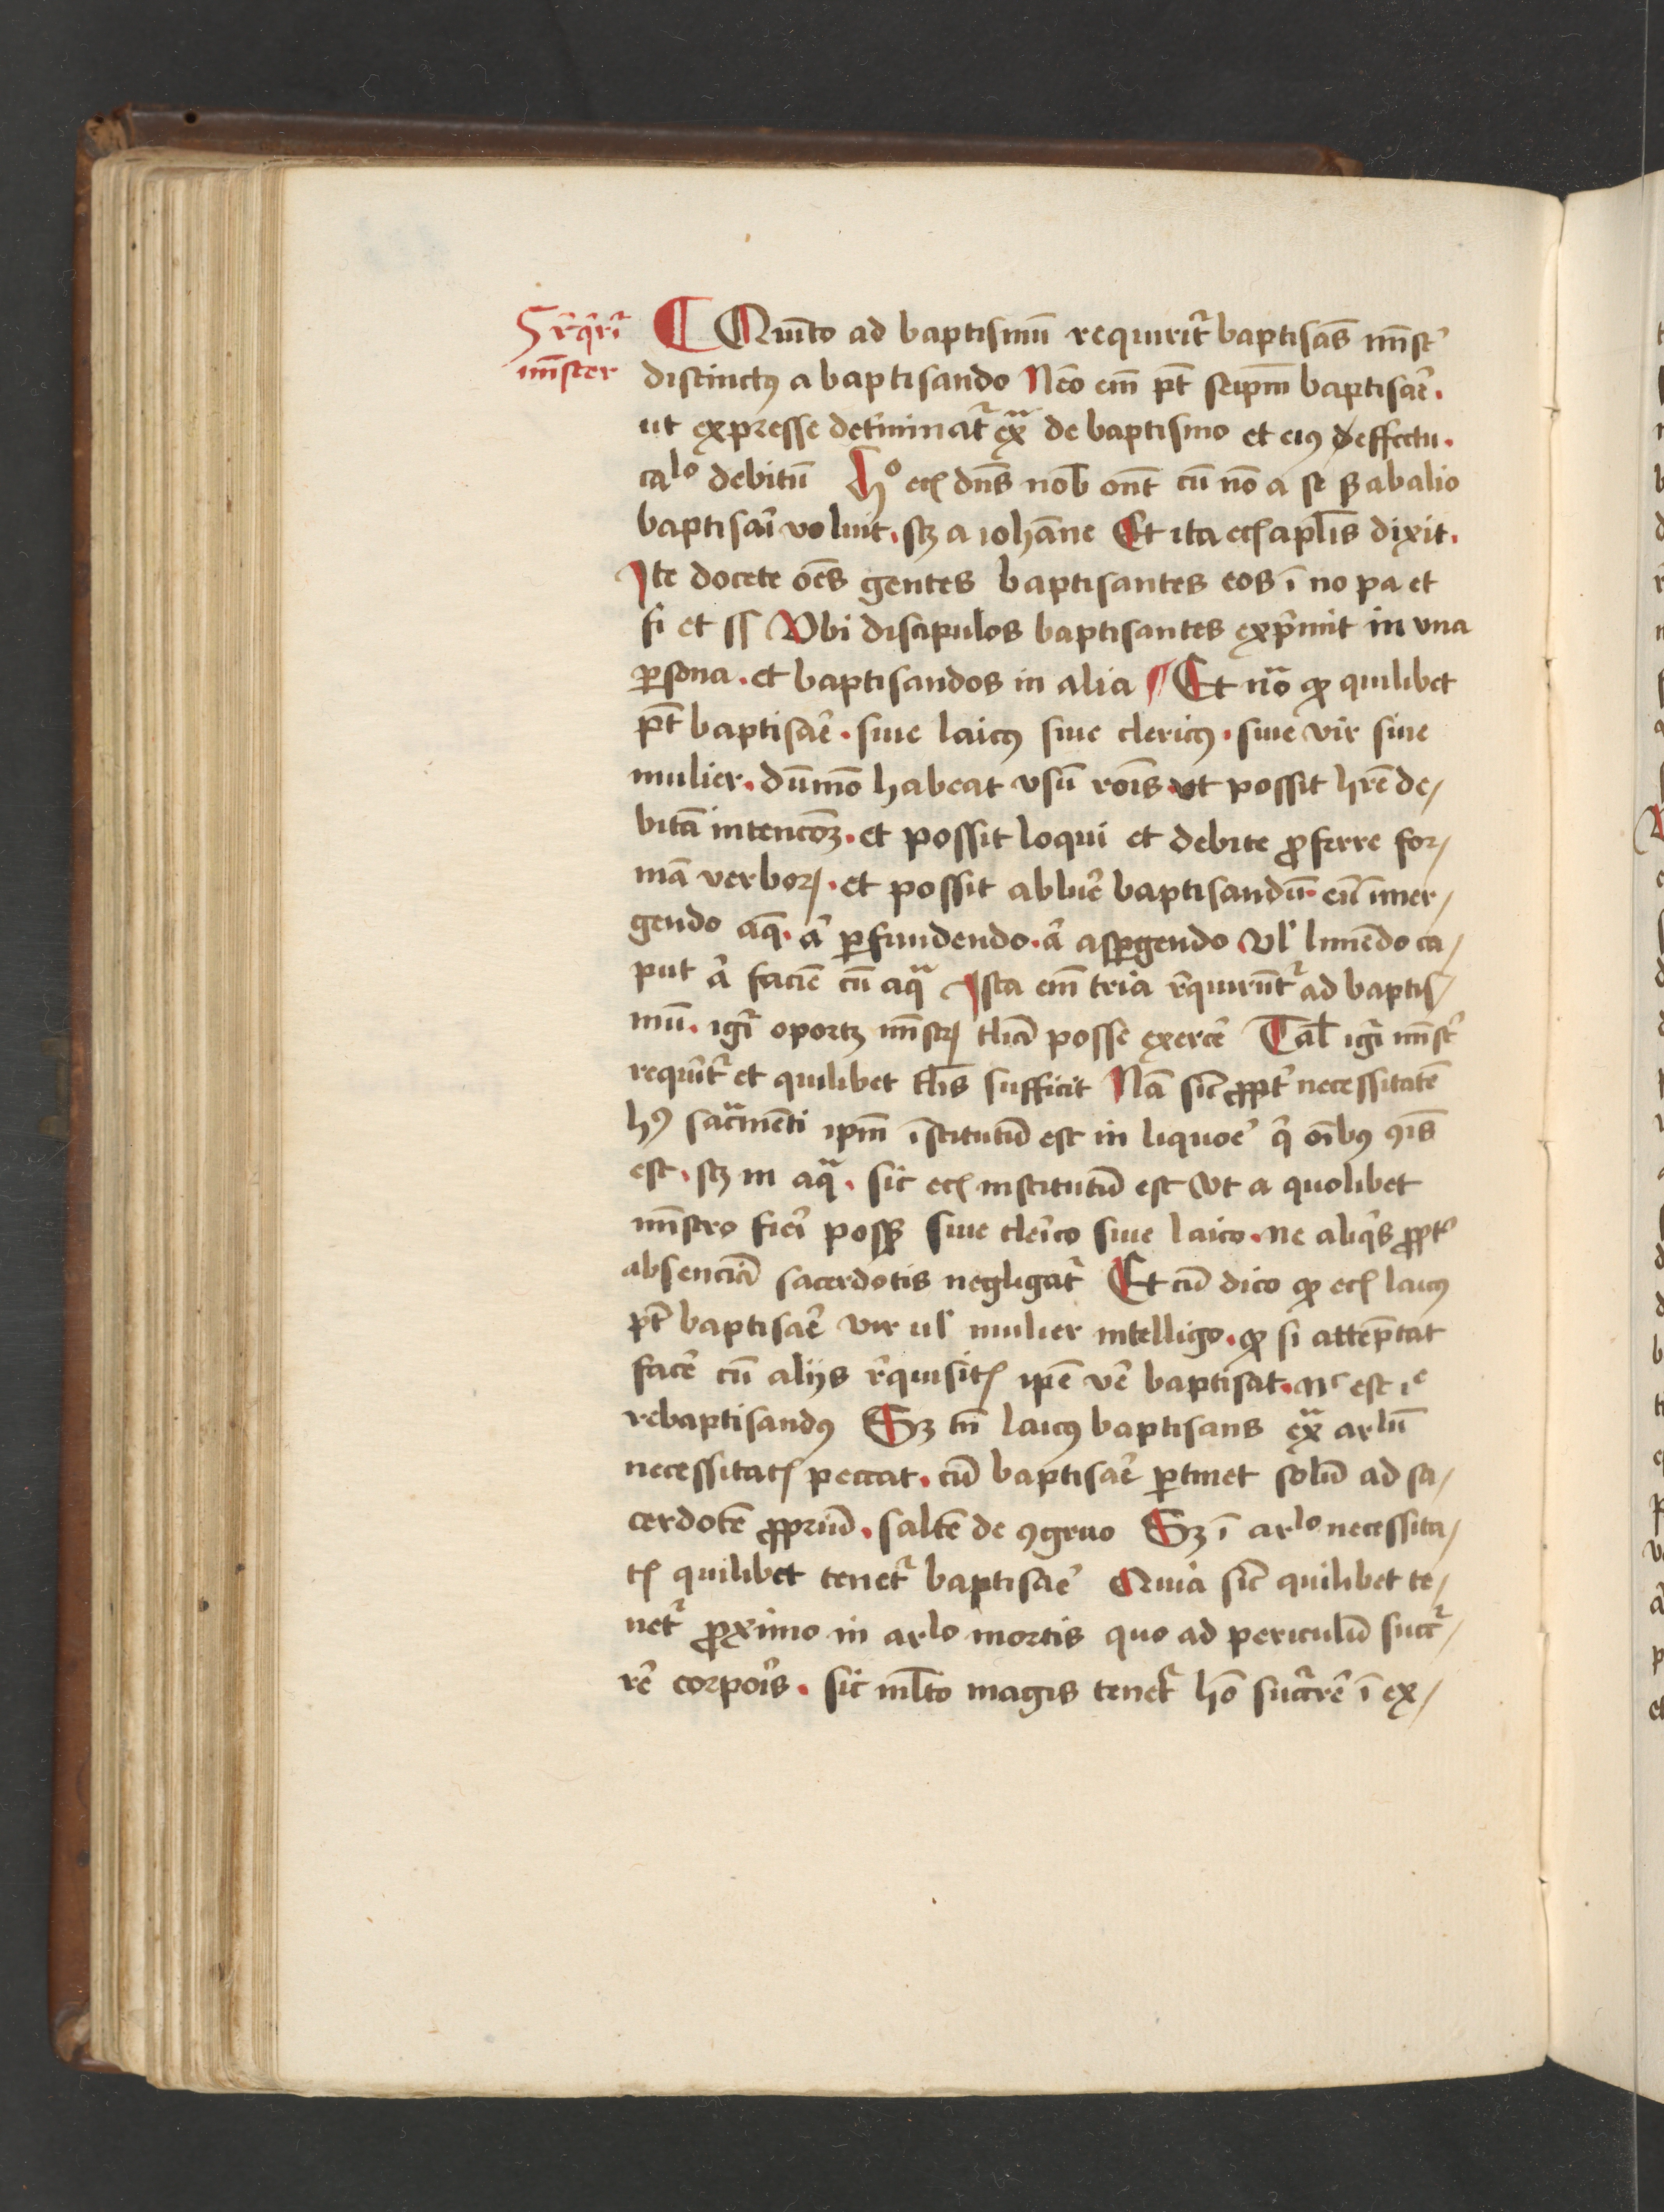 5 rͤqͥrit᷑
mīster
¶ Quīto ad baptismū requirit᷑ baptisās mīstʼ
distinctꝰ a baptisando Nēo em̄ pt̄ seip̄m baptisar̄e.
ut expresse det̄minat᷑ exᵃ de baptismo et eiꝰ effectu.
caˡᵒ debitū Hᵒ ecꝭ dn̄s nob̄ ōnt cū nō a se sꝫ ab alio
baptisari voluit. scꝫ a iohāne Et ita ecꝭ apl̄is dixit.
Ite docete oēs gentes baptisantes eos ī no pa et
fi et ss Vbi discipulos baptisantes exp̄mit in vna
ꝑsona. et baptisandos in alia ¶ Et nōᵃ ꝙ quilibet
pt̄ baptisar̄e. siue laicꝰ siue clericꝰ. siue vir siue
mulier. dūmō habeat vsū rōis. vt possit hr̄e de/
bitā intencōꝫ. et possit loqui et debite ꝓferre for/
mā verboꝝ. et possit abluer̄e baptisandū. eū īmer/
gendo aq̄. aͥ ꝑfundendo. aͥ aspgendo vlʼ liniēdo ca/
put aͥ faciē cū aqᵃ Ista em̄ tria rͤquirūt᷑ ad baptis/
mū. igr̄ oportꝫ mīstꝝ tlīa posse exercer̄e Tal̄ igr̄ mīstʼ
requirit᷑ et quilibet tl̄is sufficit Nā sic̄ ꝓptʼ necessitatē
hꝰ sacᵃmēti ip̄m īstitutū est in liquoreʼ qͥ oībꝰ ꝯīs
est. scꝫ in aqᵃ. sic ecꝭ institutū est vt a quolibet
mīstro fieri possꝫ siue cleʼico siue laico. ne aliqͥs ꝓptʼ
absenciā sacerdotis negligat᷑ Et cū dico ꝙ ecꝭ laicꝰ
pt̄ baptisar̄e vir ulʼ mulier intelligo. ꝙ si attēptat
facer̄e cū alijs rͤquisitꝭ ip̄e ver̄e baptisat. nᶜ est iᵉ
rebaptisandꝰ Sꝫ tn̄ laicꝰ baptisans exᵃ arˡū
necessitatꝭ peccat. cū baptisar̄e ꝑtinet solū ad sa/
cerdotē ꝓpriū. saltē de ꝯgruo Sꝫ ī arˡᵒ necessita/
tꝭ quilibet tenet᷑ baptisar̄e Quia sic̄ quilibet te/
net᷑ ꝓximo in arˡᵒ mortis quo ad periculū succ᷑/
rē corporis. sic ml̄to magis tenet᷑ hō succ᷑rer̄e ī ex/